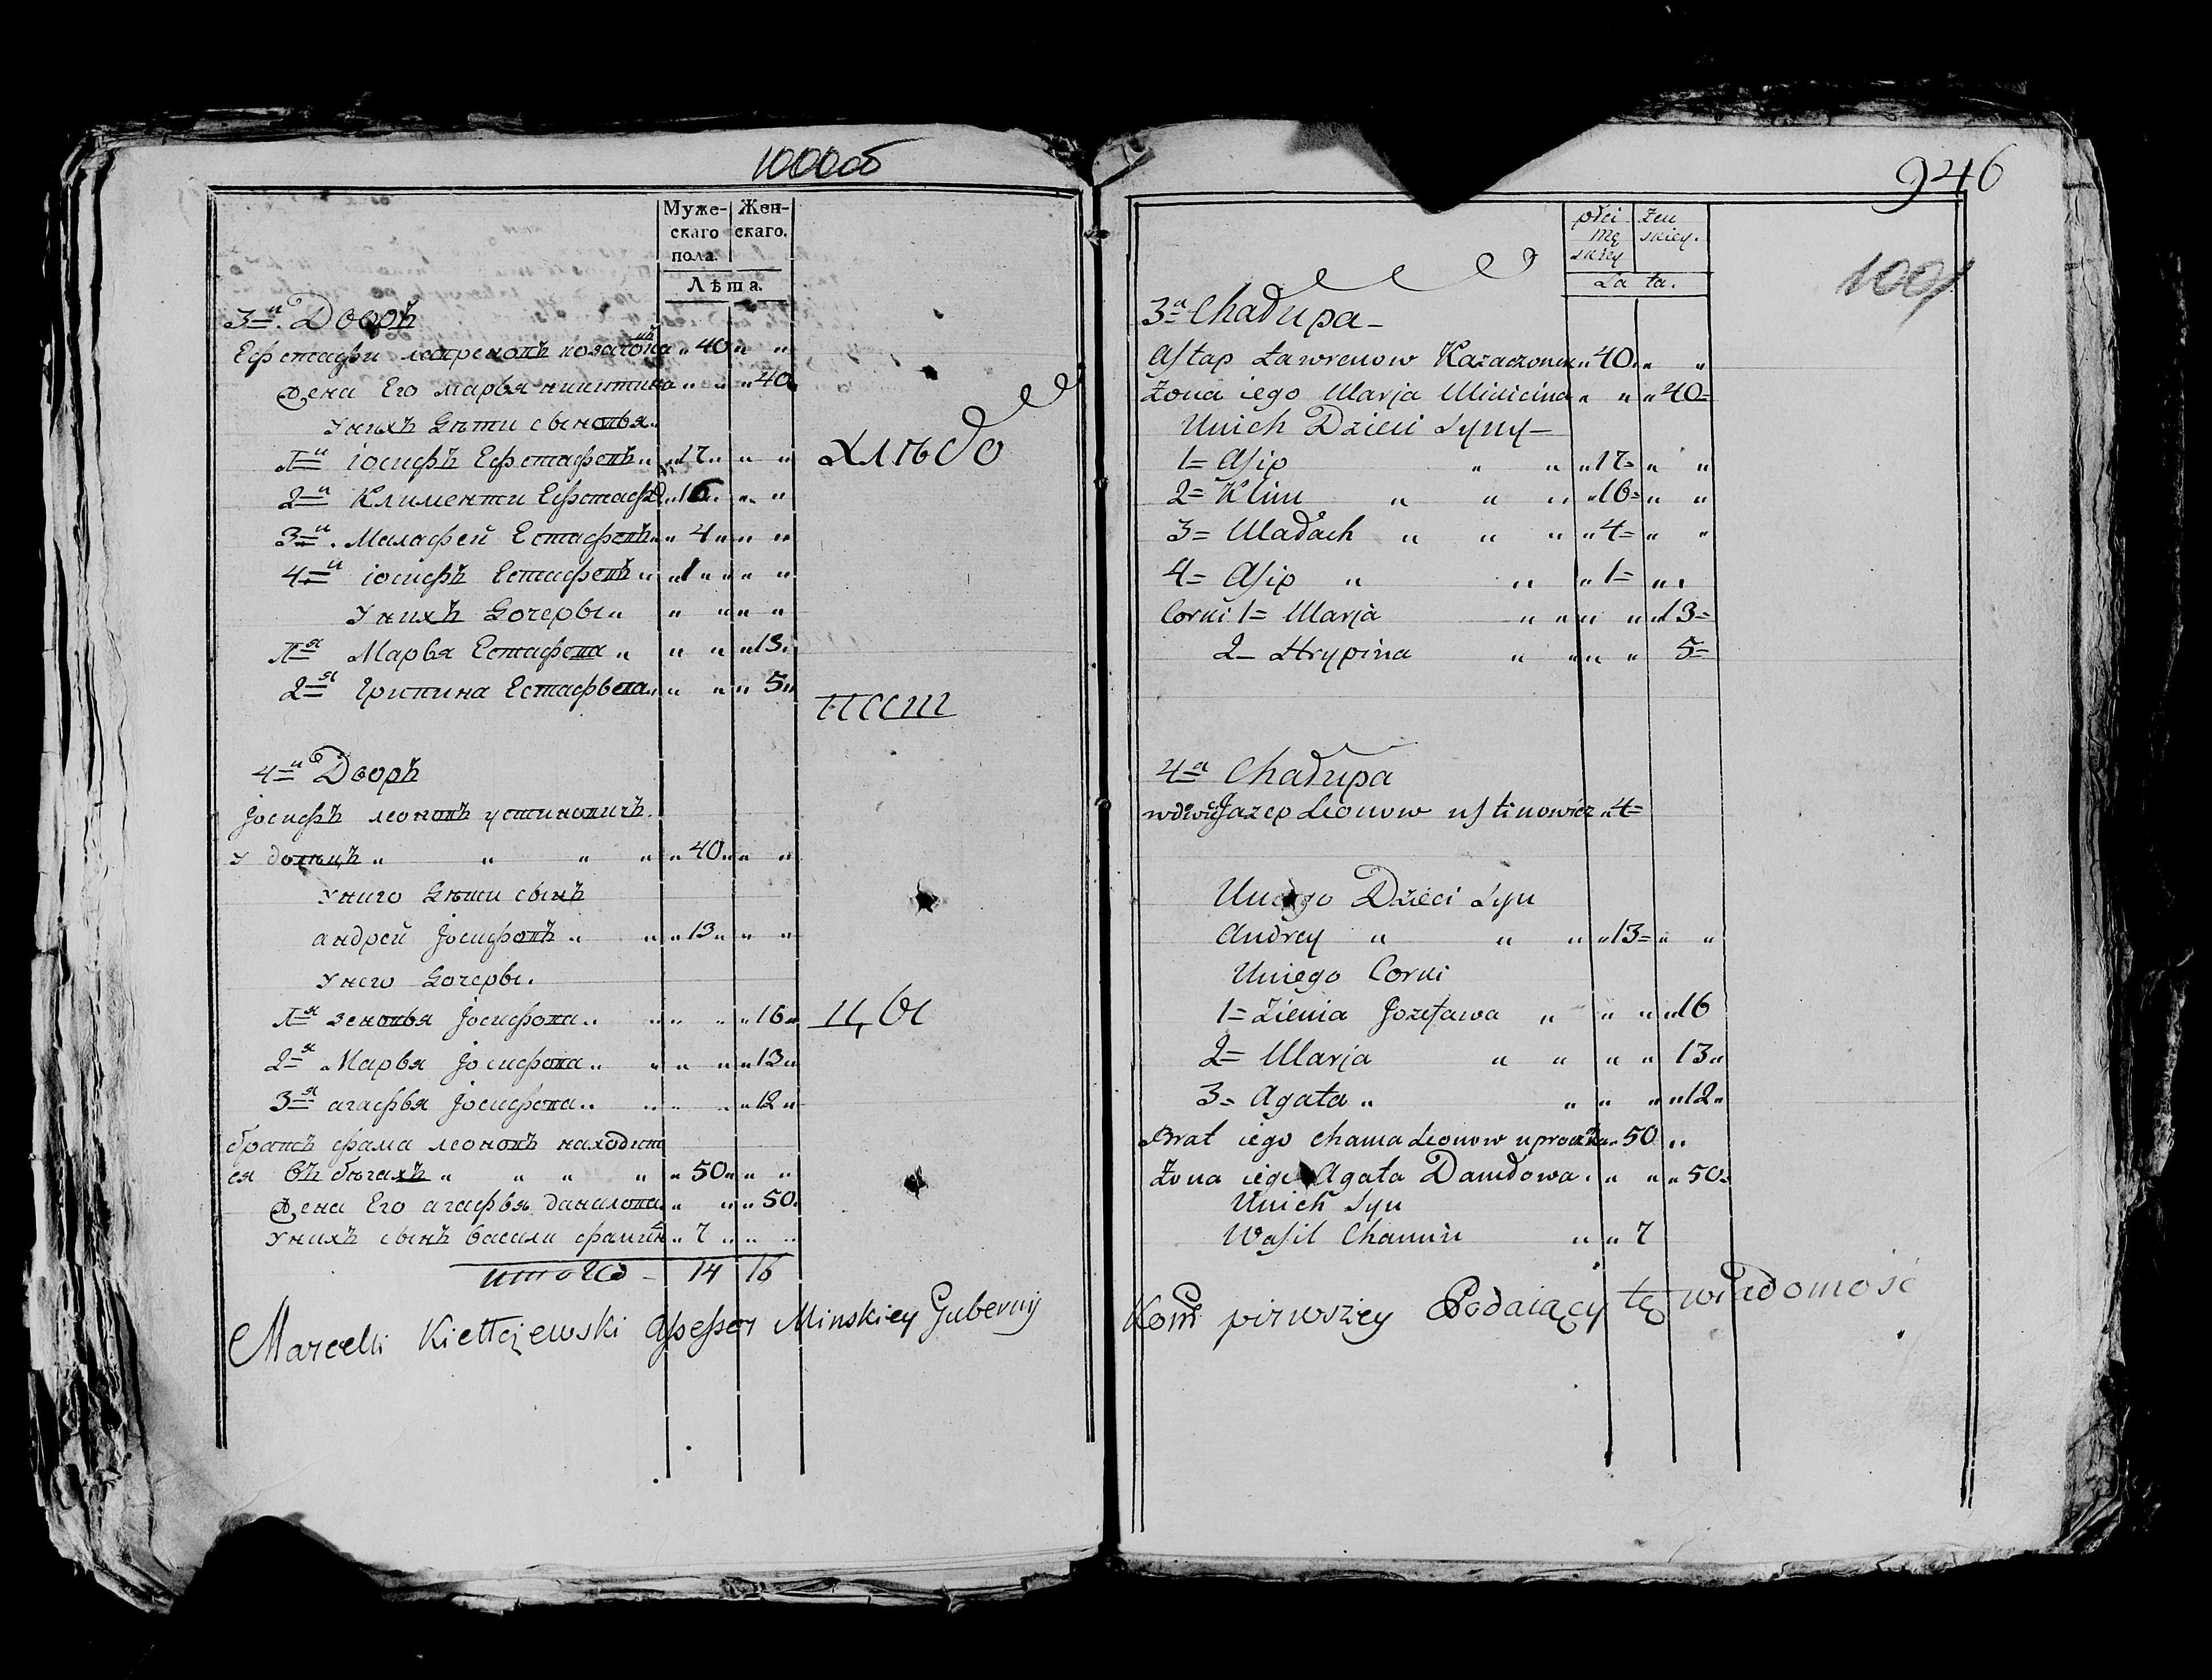 1000об
Муже-скаго пола. Жен-скаго.
Лѣта.
3-й Дворъ
Ефстафи лавреновъ козачонка „ 40 „ „
Жена Его марья микитина „ „ „ 40
У нихъ дѣти сыновья.
1-й іосифъ Ефстафевъ „ 17 „ „
2-й Клименти Ефстаф „ 16 „ „
3-й Малафей Естафевъ „ 4 „ „
4-й іосифъ Естафевъ „ 1 „ „
У нихъ дочеры „ „ „
1-я Марья Естафева „ „ „ 13
2-я Грипина Естафьева „ „ 5
хлѣбо
паш
4-й Дворъ
Іосифъ леоновъ устиновичъ.
у довецъ „ „ „ 40 „ „
У него дѣти сынъ
андрей Іосифовъ „ „ 13 „ „
У него дочеры.
1-я зеновья Іосифова „ „ 16
цы
2-я Марья Іосифова „ „ 13
3-я агафья Іосифова „ „ 12
братъ фама леоновъ находит
ся въ бѣгахъ „ „ „ „ 50 „ „
Жена Его агафья данилова „ „ 50
У нихъ сынъ васили фамин „ 7 „ „
итого - 14 16
Marcelli Kiełłczewski Assessor Minskiey Gubernij
946
1001
płci męskiey żenskiey.
Lata.
3a Chałupa
Astap Ławrenow Kazaczonek „ 40 „ „
Żona iego Marja Mikicina „ „ „ 40
Unich Dzieci Syny
1 Asip „ „ „ 17 „ „
2 Klim „ „ „ 16 „ „
3 Małach „ „ „ 4 „ „
4 Asip „ „ „ 1 „ „
Corki 1 Marja „ „ „ 13
2 Hrypina „ „ „ 5
4a Chałupa
wdowiec Jazep Leonow Ustinowicz „ 4
Uniego Dzieci Syn
Andrey „ „ „ 13 „ „
Uniego Corki
1 Zienia Jozefawa „ „ „ 16
2 Marja „ „ „ 13
3 Agata „ „ „ 12
Brat iego Chama Leonow „ 50 „
Żona iego Agata Daniłowa „ „ 50
Unich Syn
Wasil Chamin „ „ 7
Kom pirwszey Podaiący tę wiadomość